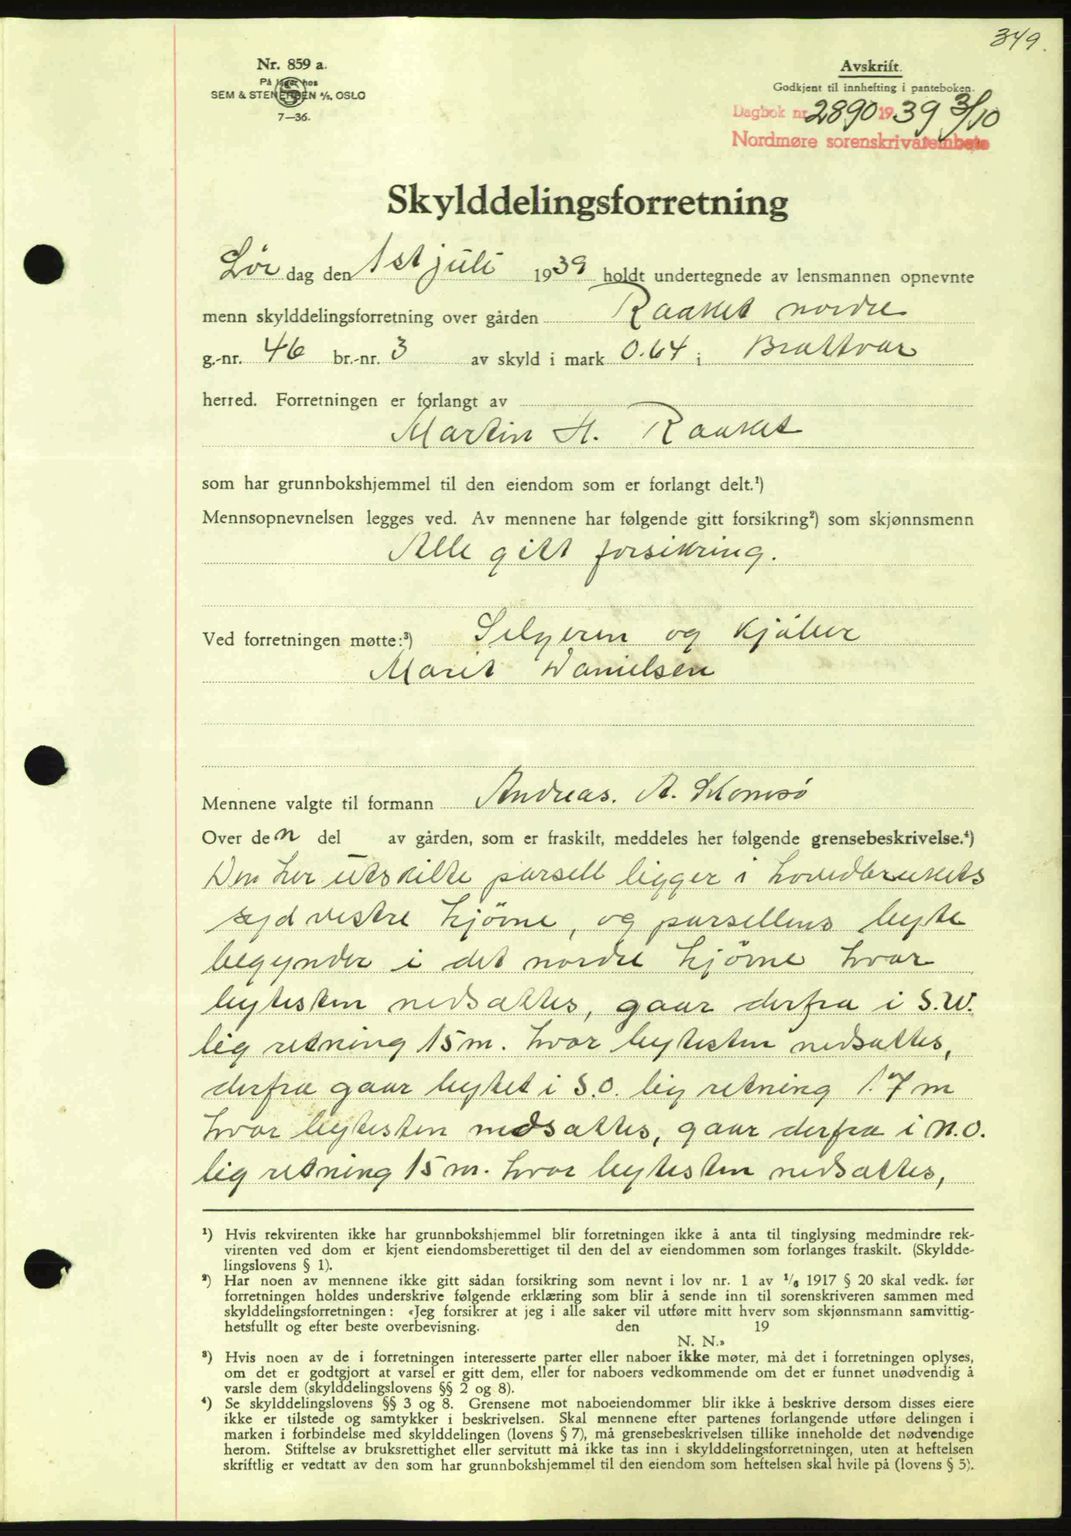 349.
Nr. 859 a.
På lager hos
SEM & STENERSEN A/S, OSLO
7—36.
Avskrift.
Godkjent til innhefting i panteboken.
Dagbok nr. 2890 1939 3/10
Nordmøre sorenskriverembete
Skylddelingsforretning
Lør dag den 1st juli 1939 holdt undertegnede av lensmannen opnevnte
menn skylddelingsforretning over gården Raaket nordre
g.-nr. 46 br.-nr. 3 av skyld i mark 0.64 i Brattvær
herred. Forretningen er forlangt av
Martin H. Raaket
som har grunnbokshjemmel til den eiendom som er forlangt delt.¹)
Mennsopnevnelsen legges ved. Av mennene har følgende gitt forsikring²) som skjønnsmenn
Alle gitt forsikring.
Ved forretningen møtte:³) Selgeren og kjøber
Marit Danielsen
Mennene valgte til formann Andreas. A. Skomsø
Over den del av gården, som er fraskilt, meddeles her følgende grensebeskrivelse.⁴)
Den her utskilte parsell ligger i hovedbrukets
syd vestre hjørne, og parsellens byte
begynder i det nordre hjørne hvor
bytesten nedsattes, gaar derfra i S.W.
lig retning 15 m. hvor bytesten nedsattes,
derfra gaar bytet i S.O. lig retning 17 m
hvor bytesten nedsattes, gaar derfra i N.O.
lig retning 15 m. hvor bytesten nedsattes,
¹) Hvis rekvirenten ikke har grunnbokshjemmel blir forretningen ikke å anta til tinglysing medmindre rek-
virenten ved dom er kjent eiendomsberettiget til den del av eiendommen som forlanges fraskilt. (Skyldde-
lingslovens § 1).
²) Har noen av mennene ikke gitt sådan forsikring som nevnt i lov nr. 1 av 1/6 1917 § 20 skal vedk. før
forretningen holdes underskrive følgende erklæring som blir å sende inn til sorenskriveren sammen med
skylddelingsforretningen: «Jeg forsikrer at jeg i alle saker vil utføre mitt hverv som skjønnsmann samvittig-
hetsfullt og efter beste overbevisning. den 19
N. N.»
³) Hvis noen av de i forretningen interesserte parter eller naboer ikke møter, må det i forretningen oplyses,
om det er godtgjort at varsel er gitt dem, eller for naboers vedkommende om det er funnet unødvendig å
varsle dem (skylddelingslovens §§ 2 og 8).
⁴) Se skylddelingslovens §§ 3 og 8. Grensene mot naboeiendommer blir ikke å beskrive dersom disses eiere
ikke er tilstede og samtykker i beskrivelsen. Skal mennene efter partenes forlangende utføre delingen i
marken i forbindelse med skylddelingen (lovens § 7), må grensebeskrivelsen tillike inneholde det nødvendige
herom. Stiftelse av bruksrettighet eller servitutt må ikke tas inn i skylddelingsforretningen, uten at heftelsen
skriftlig er vedtatt av den som har grunnbokshjemmel til den eiendom som heftelsen skal hvile på (lovens § 5).